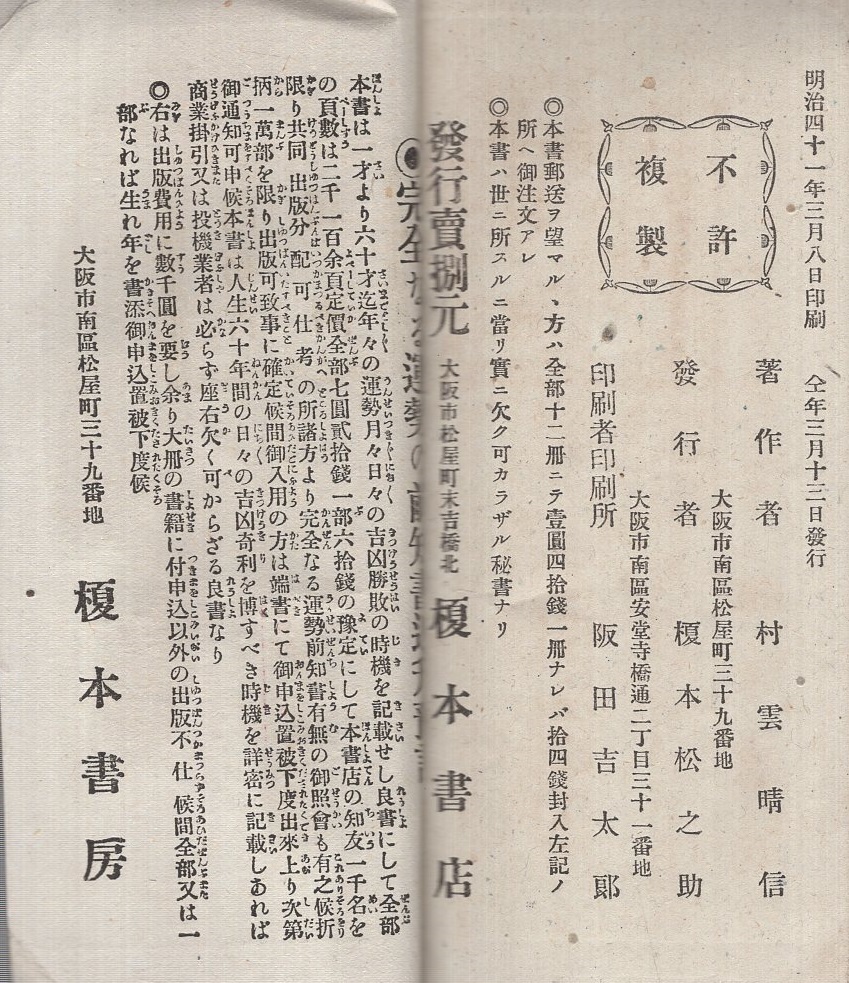 明治四十一年三月八日印刷　仝年三月十三日發行
不許
複製
著作者　村雲晴信
大阪市南區松屋町三十九番地
發行者　榎本松之助
大阪市南區安堂寺橋通二丁目三十一番地
印刷者印刷所　阪田吉太郎
◎本書郵送ヲ望マル丶方ハ全部十二冊ニテ壹圓四拾錢一冊ナレバ拾四錢封入左記ノ
所ヘ御注文アレ
◎本書ハ世ニ所スルニ當リ實ニ欠ク可カラザル秘書ナリ
發行賣捌元　大阪市松屋町末吉橋北　榎本書店
本書は一才より六十才迄年々の運勢月々日々の吉凶勝敗の時機を記載せし良書にして全部
の頁數は二千一百余頁定價全部七圓貳拾錢一部六拾錢の豫定にして本書店の知友一千名を
限り共同出版分配可仕考の所諸方より完全なる運勢前知書有無の御照會も有之候折
柄一萬部を限り出版可致事に確定候間御入用の方は端書にて御申込置被下度出來上り次第
御通知可申候本書は人生六十年間の日々の吉凶奇利を博すべき時機を詳密に記載しあれば
商業掛引又は投機業者は必らず座右欠く可からざる良書なり
◎右は出版費用に數千圓を要し余り大冊の書籍に付申込以外の出版不仕候間全部又は一
部なれば生れ年を書添御申込置被下度候
大阪市南區松屋町三十九番地　榎本書房